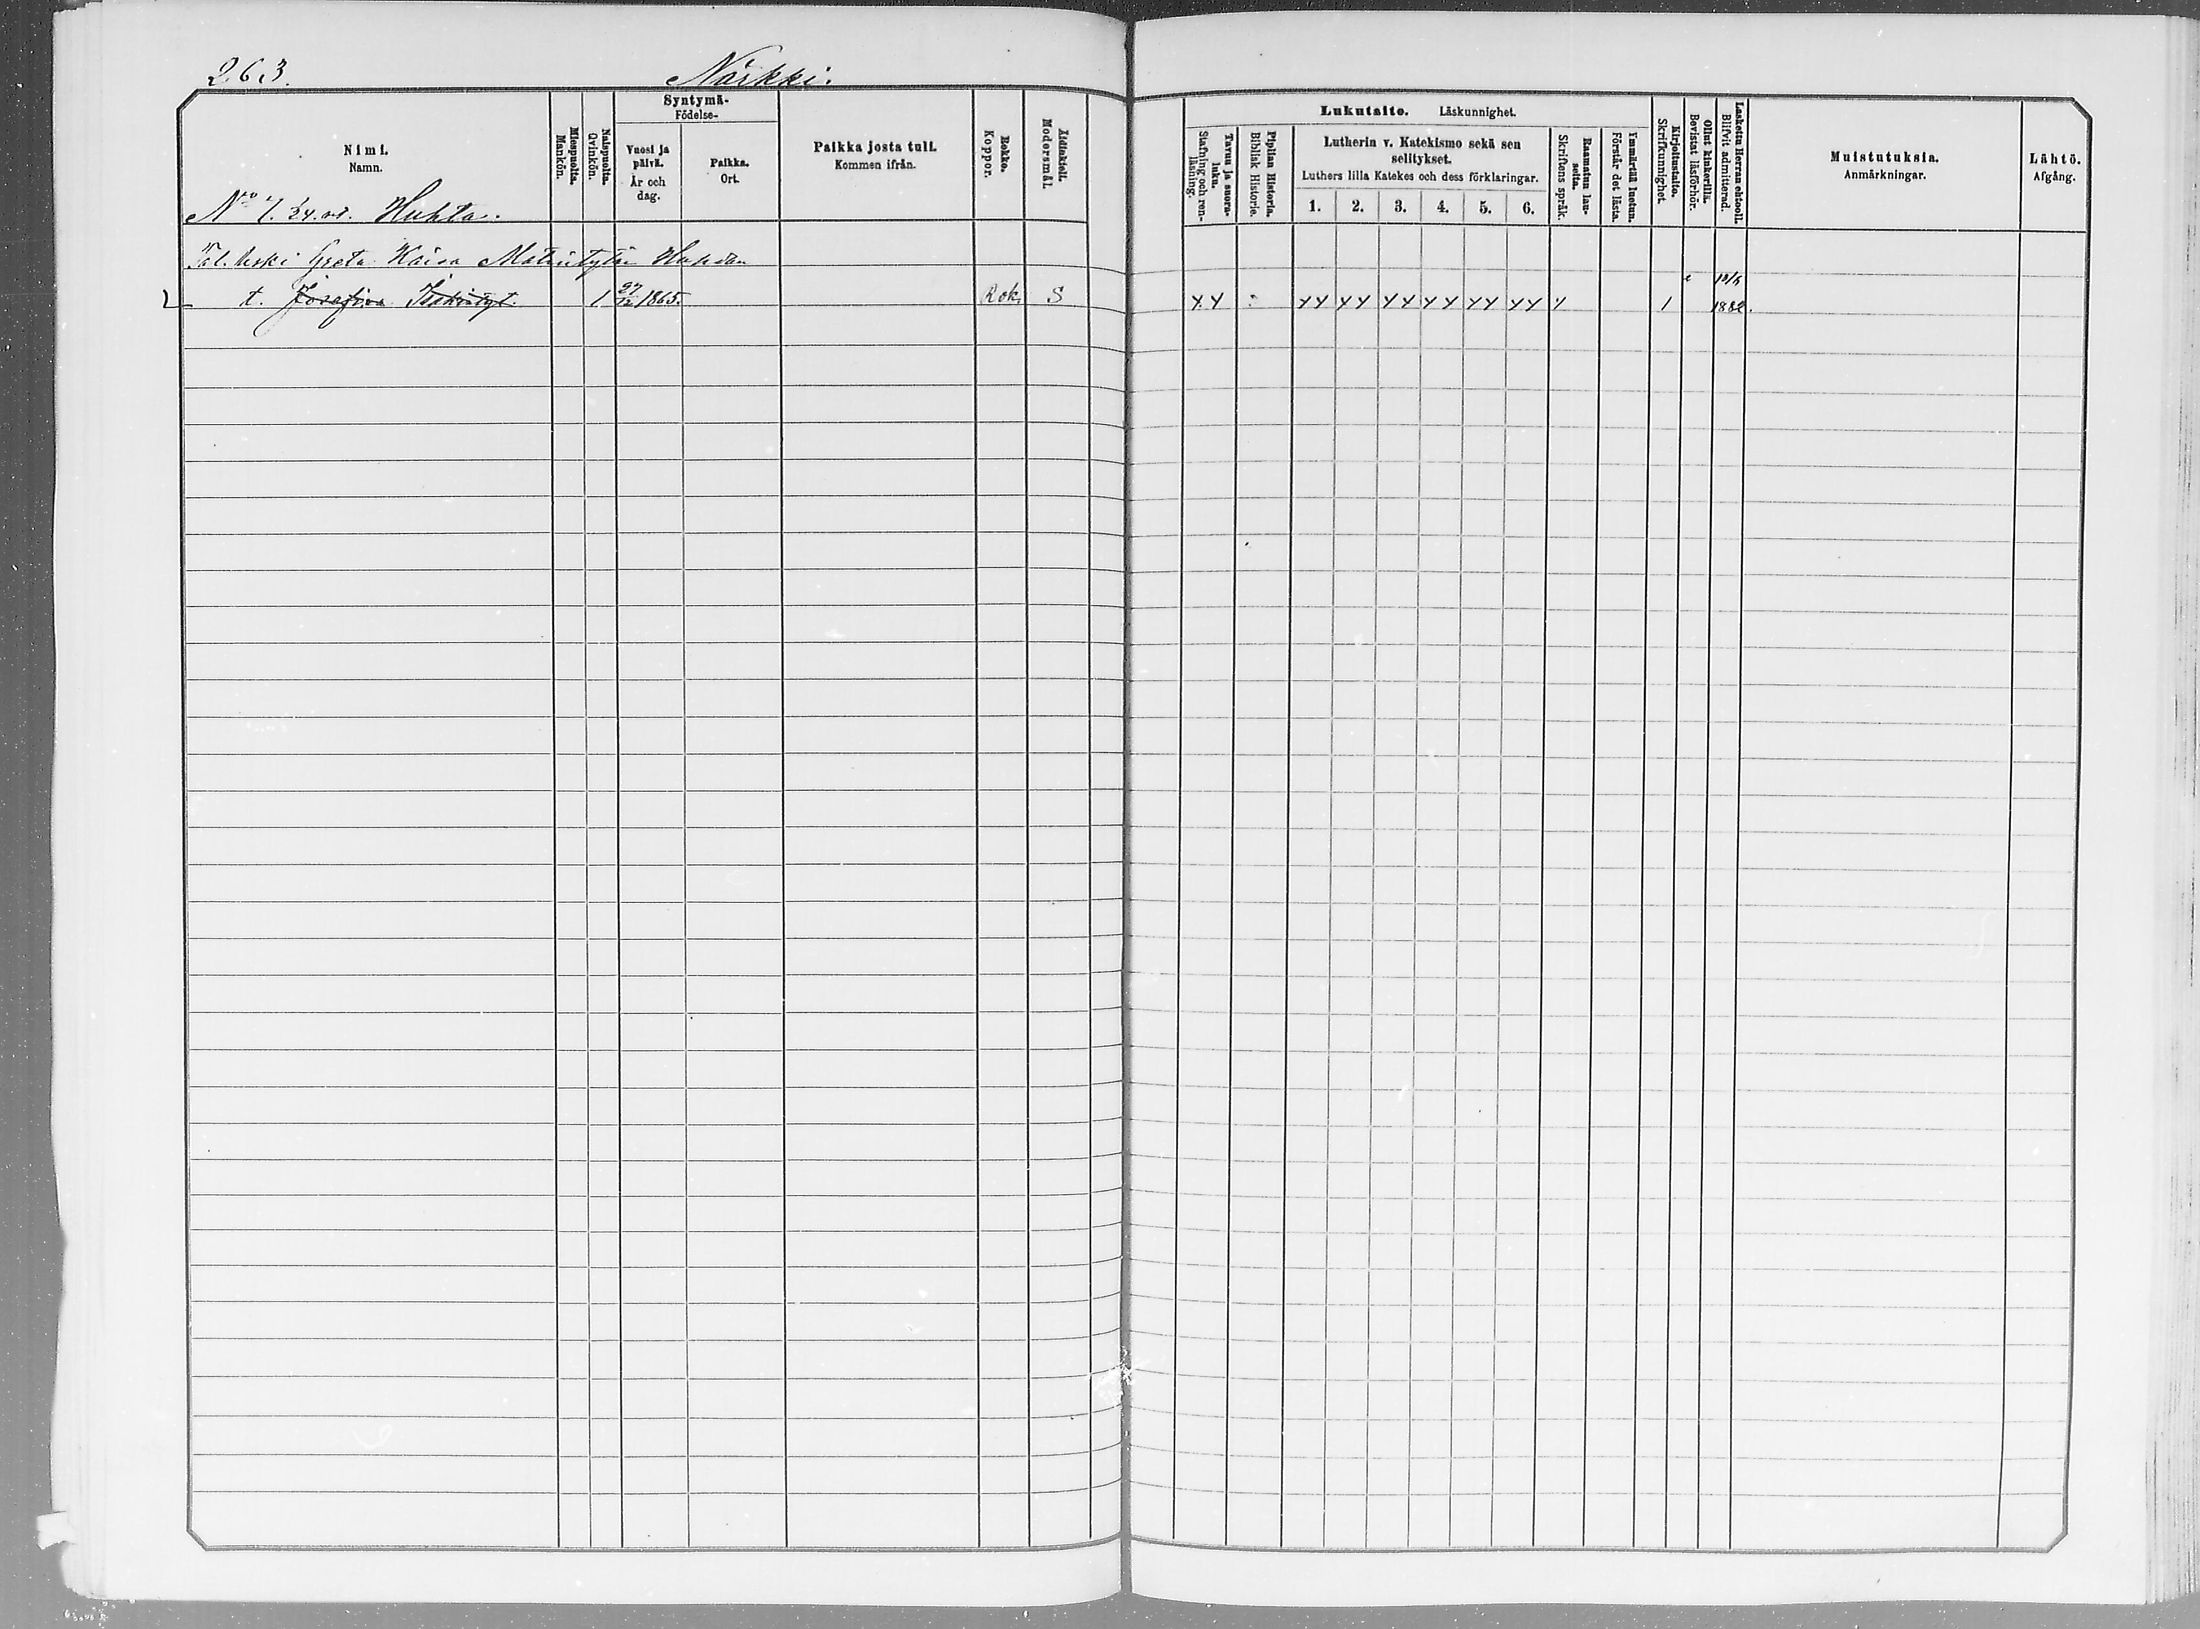 263.
Närkki.
Nimi.
Namn.
Miespuolta.
Mankön.
Naispuolta.
Qvinkön.
Syntymä-
Födelse-
Vuosi ja
päivä.
År och
dag.
Paikka.
Ort.
Paikka josta tuli.
Kommen ifrån.
Rokko.
Koppor.
Äidinkieli.
Modersmål.
Lukutaito. Läskunnighet.
Tavuu ja suora-
luku.
Stafning och ren-
läsning.
Piplian Historia.
Biblisk Historie.
Lutherin v. Katekismo sekä sen
selitykset.
Luthers lilla Katekes och dess förklaringar.
1. 2. 3. 4. 5. 6.
Raamatun lau-
seita.
Skriftens språk.
Ymmärtää luetun.
Förstår det lästa.
Kirjoitustaito.
Skrifkunnighet.
Ollut kinkerillä.
Bevistat läsförhör.
Laskettu Herran ehtooll.
Blifvit admitterad.
Muistutuksia.
Anmärkningar.
Lähtö.
Afgång.
No 7. Huhta.
Tal. leski Greta Kaisa
t. Josefina 1 27/12 1865. Rok. S
1882.